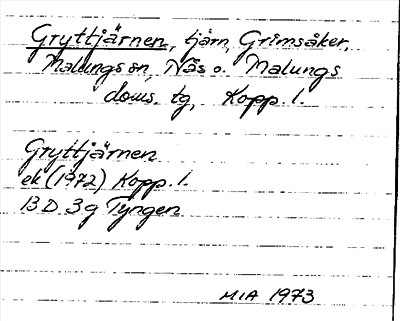 Gryttjärnen, tjärn, Grimsåker,
Malungs sn, Nås o. Malungs
doms. tg, Kopp. l.
Gryttjärnen
ek (1972) Kopp. l.
13 D 3 g Tyngen
MIA 1973